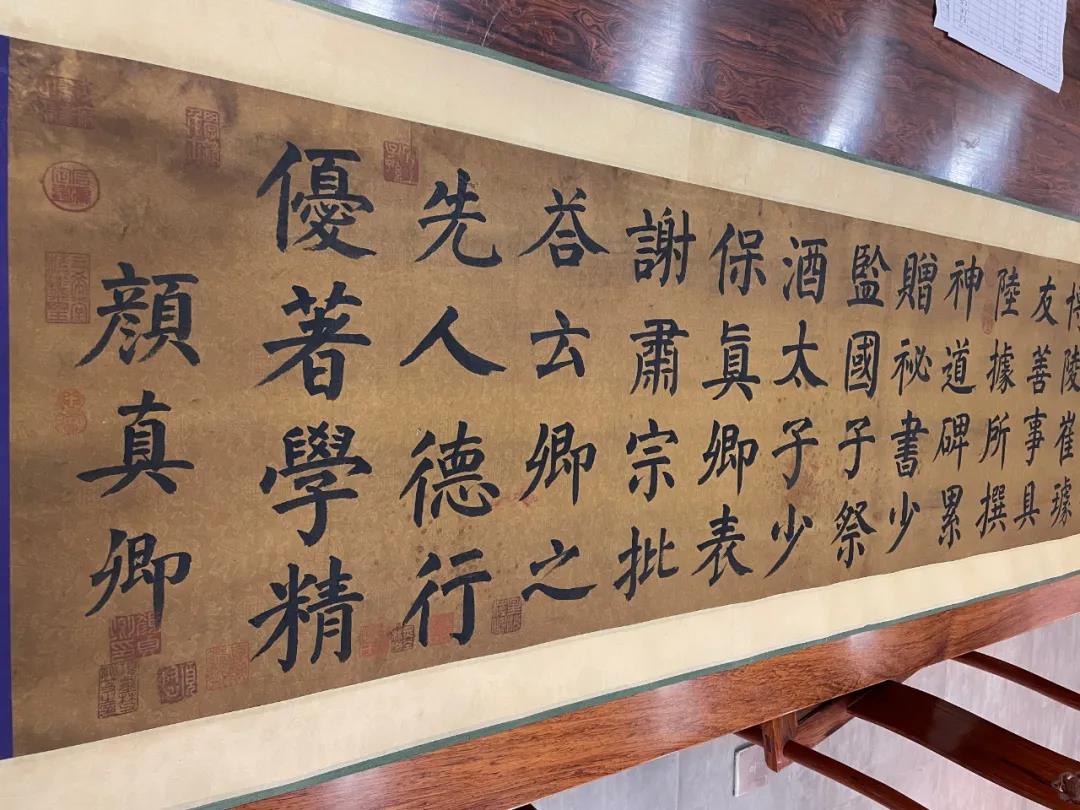 陵崔璩
友善事具
陸據所撰
神道碑累
贈祕書少
監國子祭
酒太子少
保眞卿表
謝肅宗批
荅云卿之
先人德行
優著學精
顏真卿